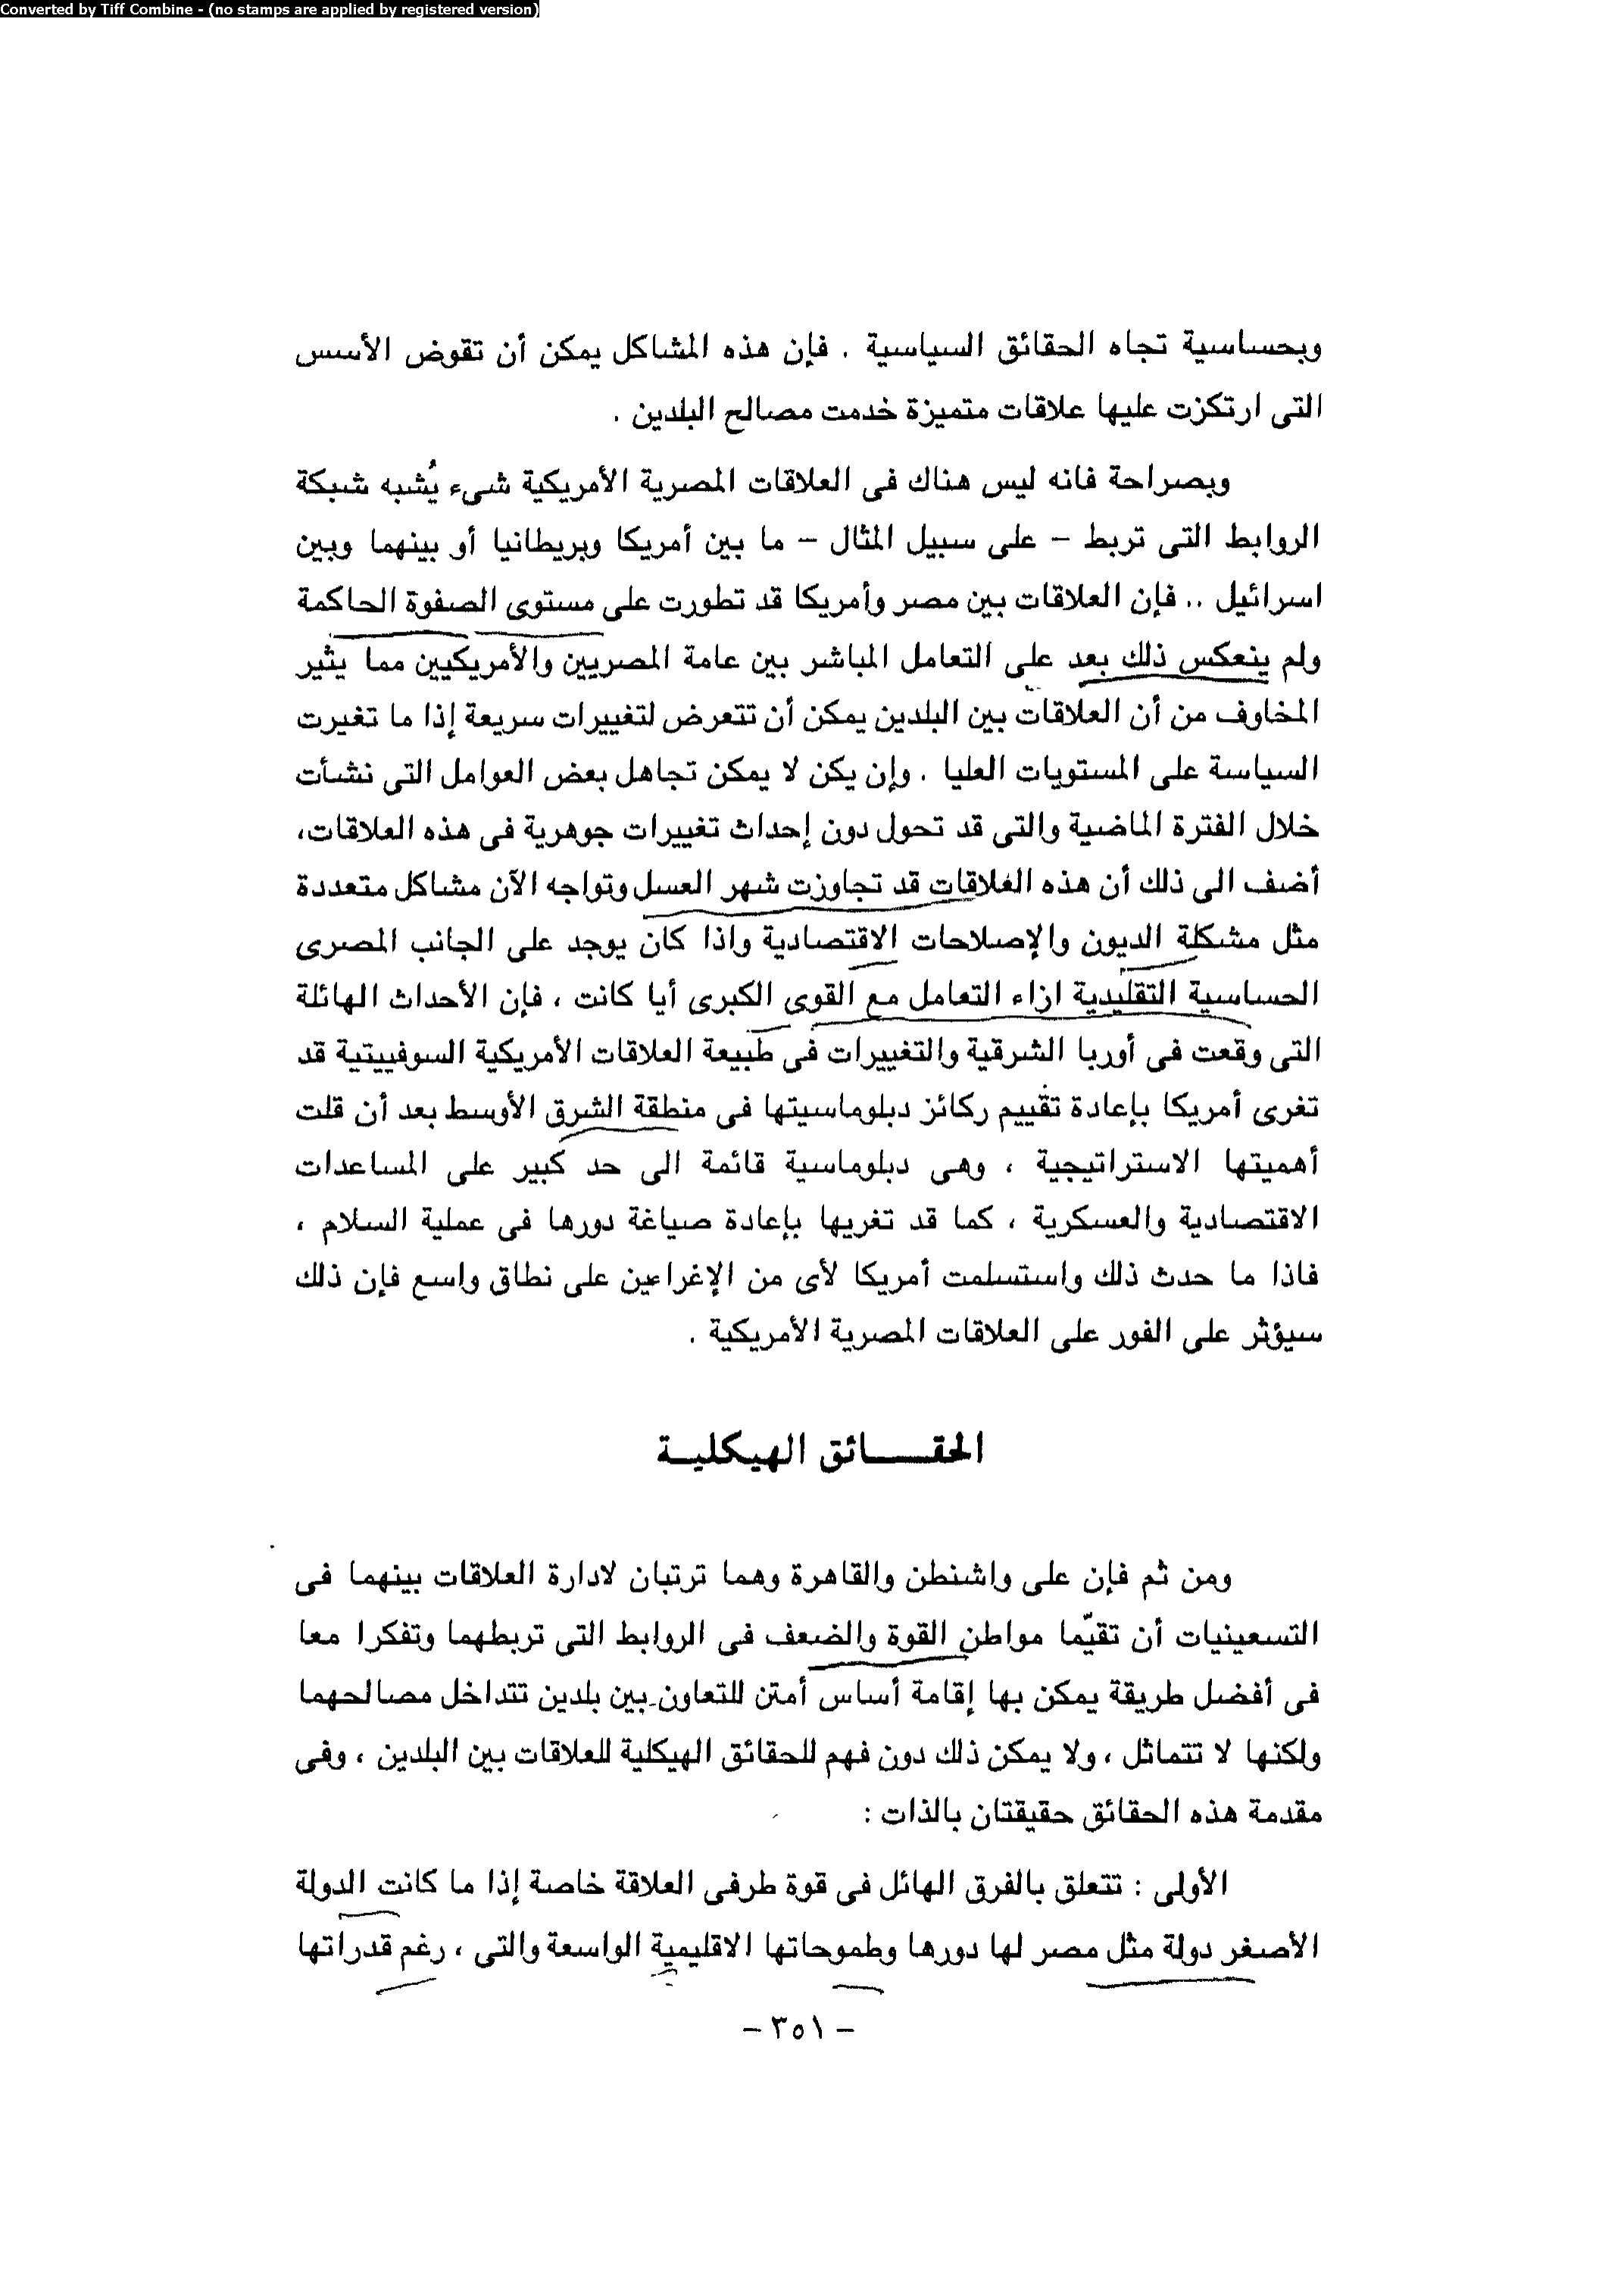 Converted by Tiff Combine - (no stamps are applied by registered version)
وبحساسية تجاه الحقائق السياسية . فإن هذه المشاكل يمكن أن تقوض الأسس
التى ارتكزت عليها علاقات متميزة خدمت مصالح البلدين .
وبصراحة فانه ليس هناك فى العلاقات المصرية الأمريكية شىء يُشبه شبكة
الروابط التى تربط - على سبيل المثال - ما بين أمريكا وبريطانيا أو بينهما وبين
اسرائيل .. فإن العلاقات بين مصر وأمريكا قد تطورت على مستوى الصفوة الحاكمة
ولم ينعكس ذلك بعد على التعامل المباشر بين عامة المصريين والأمريكيين مما يثير
المخاوف من أن العلاقات بين البلدين يمكن أن تتعرض لتغييرات سريعة إذا ما تغيرت
السياسة على المستويات العليا . وإن يكن لا يمكن تجاهل بعض العوامل التى نشأت
خلال الفترة الماضية والتى قد تحول دون إحداث تغييرات جوهرية فى هذه العلاقات،
أضف الى ذلك أن هذه العلاقات قد تجاوزت شهر العسل وتواجه الآن مشاكل متعددة
مثل مشكلة الديون والإصلاحات الاقتصادية واذا كان يوجد على الجانب المصرى
الحساسية التقليدية ازاء التعامل مع القوى الكبرى أيا كانت ، فإن الأحداث الهائلة
التى وقعت فى أوربا الشرقية والتغييرات فى طبيعة العلاقات الأمريكية السوفييتية قد
تغرى أمريكا بإعادة تقييم ركائز دبلوماسيتها فى منطقة الشرق الأوسط بعد أن قلت
أهميتها الاستراتيجية ، وهى دبلوماسية قائمة الى حد كبير على المساعدات
الاقتصادية والعسكرية ، كما قد تغريها بإعادة صياغة دورها فى عملية السلام ،
فاذا ما حدث ذلك واستسلمت أمريكا لأى من الإغراءين على نطاق واسع فإن ذلك
سيؤثر على الفور على العلاقات المصرية الأمريكية .
الحقـــائق الهيكليـة
ومن ثم فإن على واشنطن والقاهرة وهما ترتبان لادارة العلاقات بينهما فى
التسعينيات أن تقيّما مواطن القوة والضعف فى الروابط التى تربطهما وتفكرا معا
فى أفضل طريقة يمكن بها إقامة أساس أمتن للتعاون بين بلدين تتداخل مصالحهما
ولكنها لا تتماثل ، ولا يمكن ذلك دون فهم للحقائق الهيكلية للعلاقات بين البلدين ، وفى
مقدمة هذه الحقائق حقيقتان بالذات :
الأولى : تتعلق بالفرق الهائل فى قوة طرفى العلاقة خاصة إذا ما كانت الدولة
الأصغر دولة مثل مصر لها دورها وطموحاتها الاقليمية الواسعة والتى ، رغم قدراتها
- ٣٥١ -